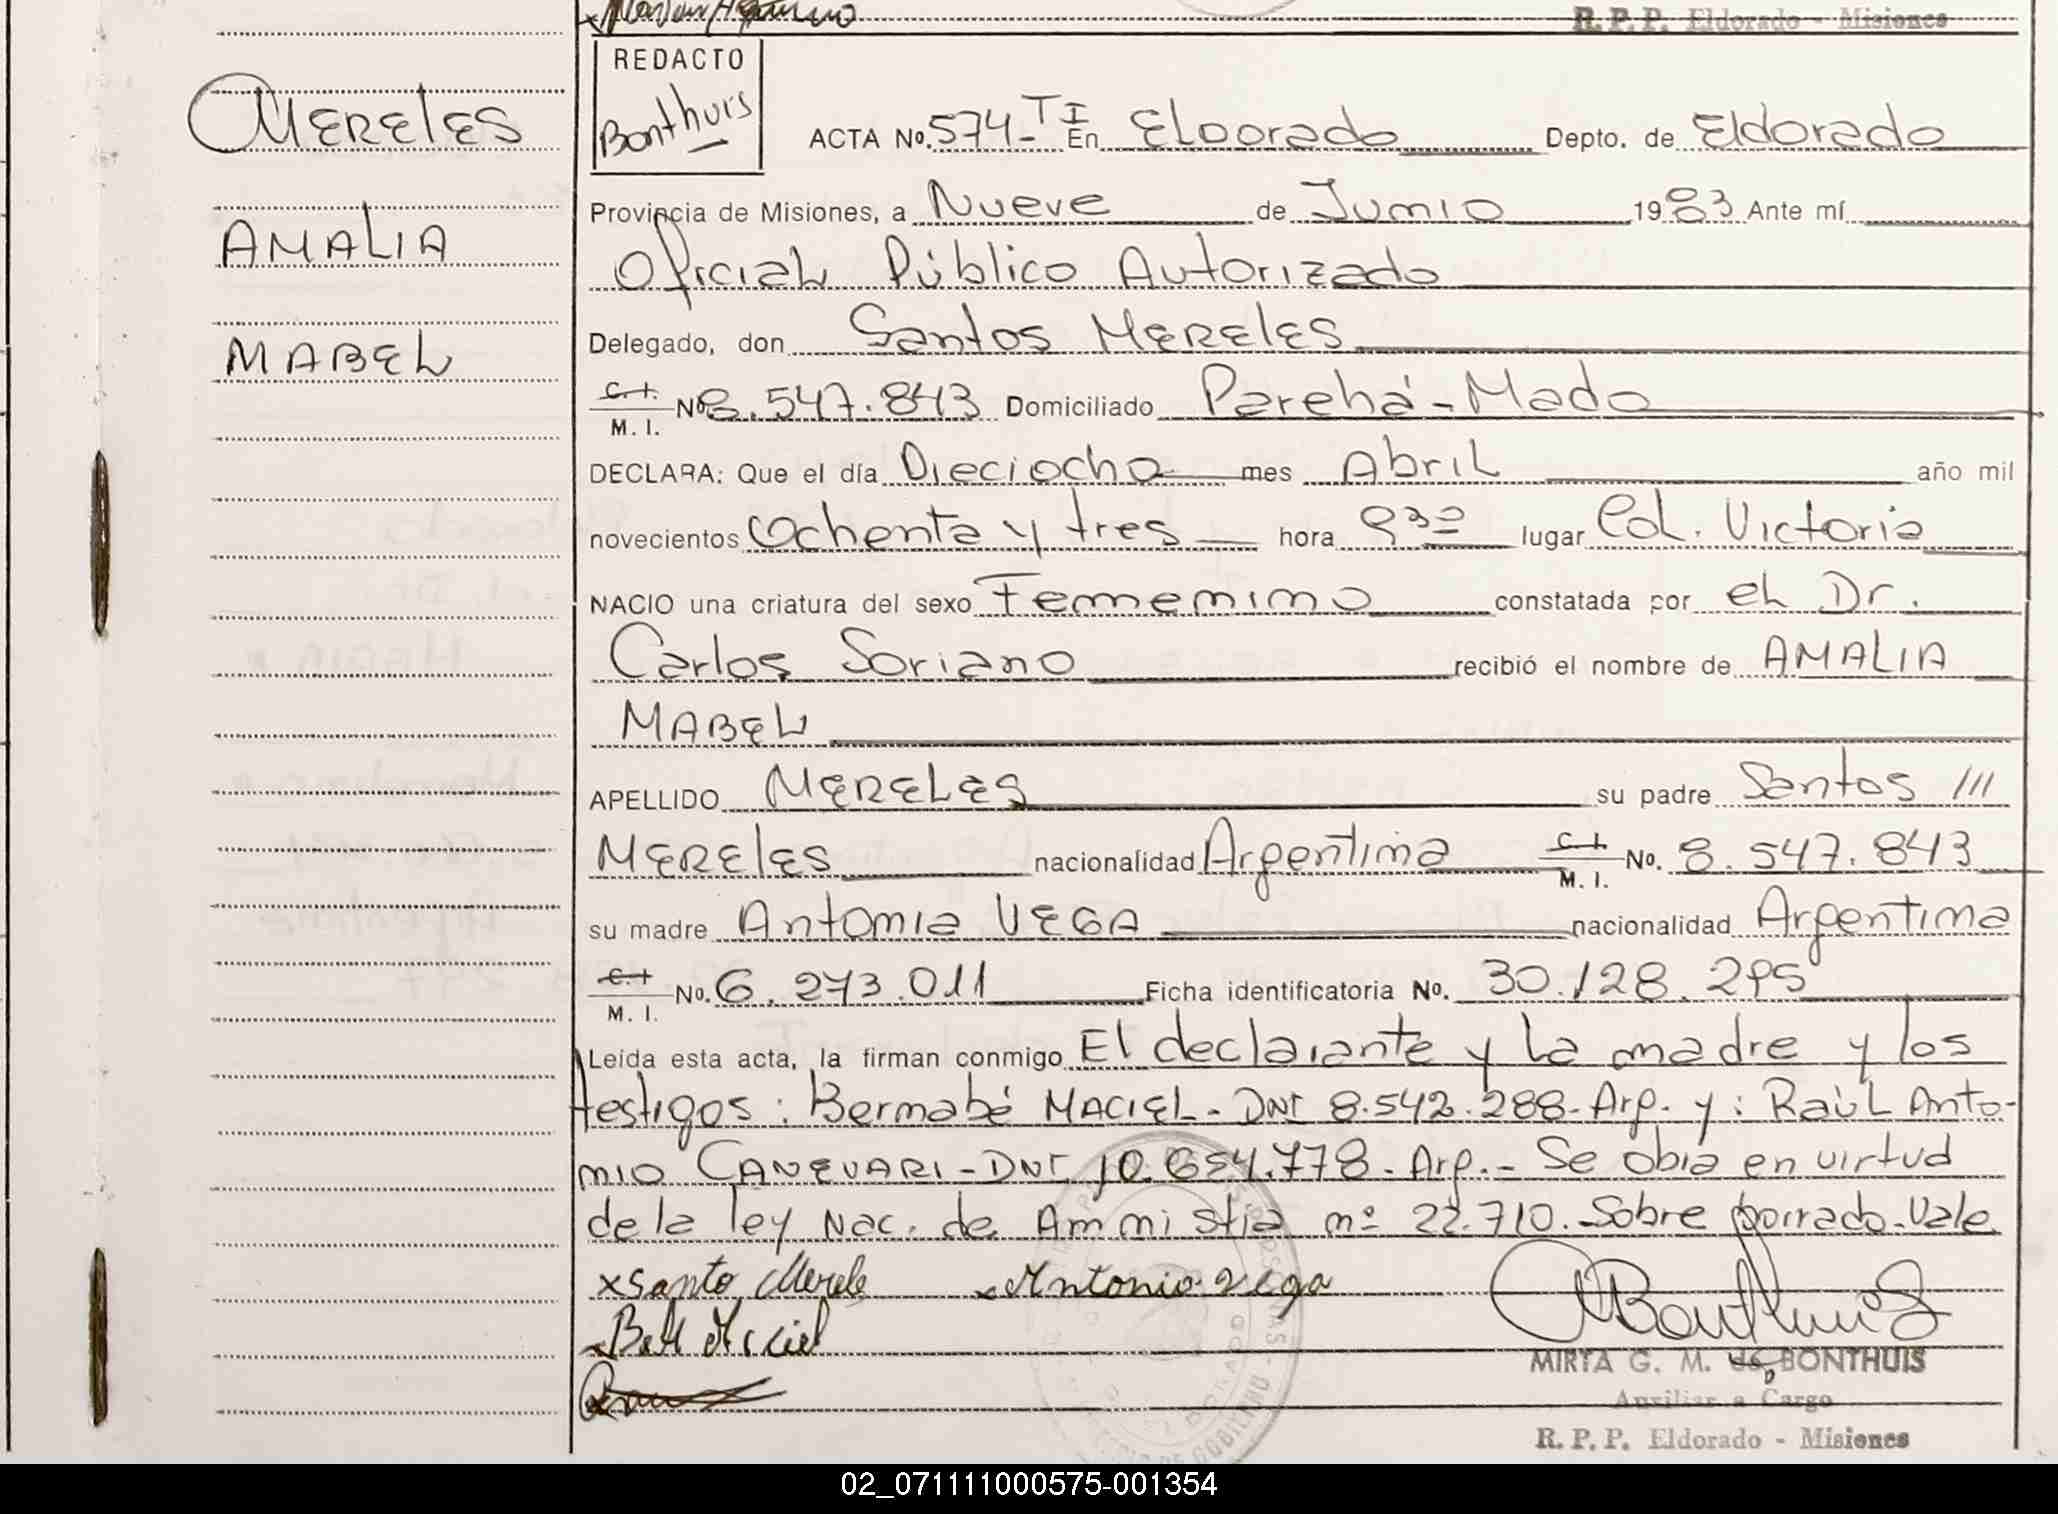 R.P.P. Eldorado - Misiones
MERELES
AMALIA
MABEL
REDACTO
Bonthuis
ACTA No. 574-TI En Eldorado Depto. de Eldorado
Provincia de Misiones, a Nueve de Junio 1983 Ante mí
Oficial Público Autorizado
Delegado, don Santos MERELES
C.I.
M. I. No 8.547.843 Domiciliado Parehá-Mado
DECLARA: Que el día Dieciocho mes Abril año mil
novecientos Ochenta y tres hora 930 lugar Col. Victoria
NACIO una criatura del sexo Femenino constatada por el Dr.
Carlos Soriano recibió el nombre de AMALIA
MABEL
APELLIDO MERELES su padre Santos ///
MERELES nacionalidad Argentina C.I. M. I. No. 8.547.843
su madre Antonia VEGA nacionalidad Argentina
C.I. M. I. No. 6.273.011 Ficha identificatoria No. 30.128.295
Leída esta acta, la firman conmigo El declarante y la madre y los
testigos: Bernabé MACIEL- DNI 8.542.288-Arg. y: Raúl Anto-
nio CANEVARI-DNI 10.654.778-Arg.- Se obia en virtud
de la ley Nac. de Amnistia nº 22.710.-Sobre borrado-Vale
x Santo Merele x Antonio vega
Maciel
Bonthuis
MIRTA G. M. de BONTHUIS
Auxiliar a Cargo
R. P. P. Eldorado - Misiones
02_071111000575-001354